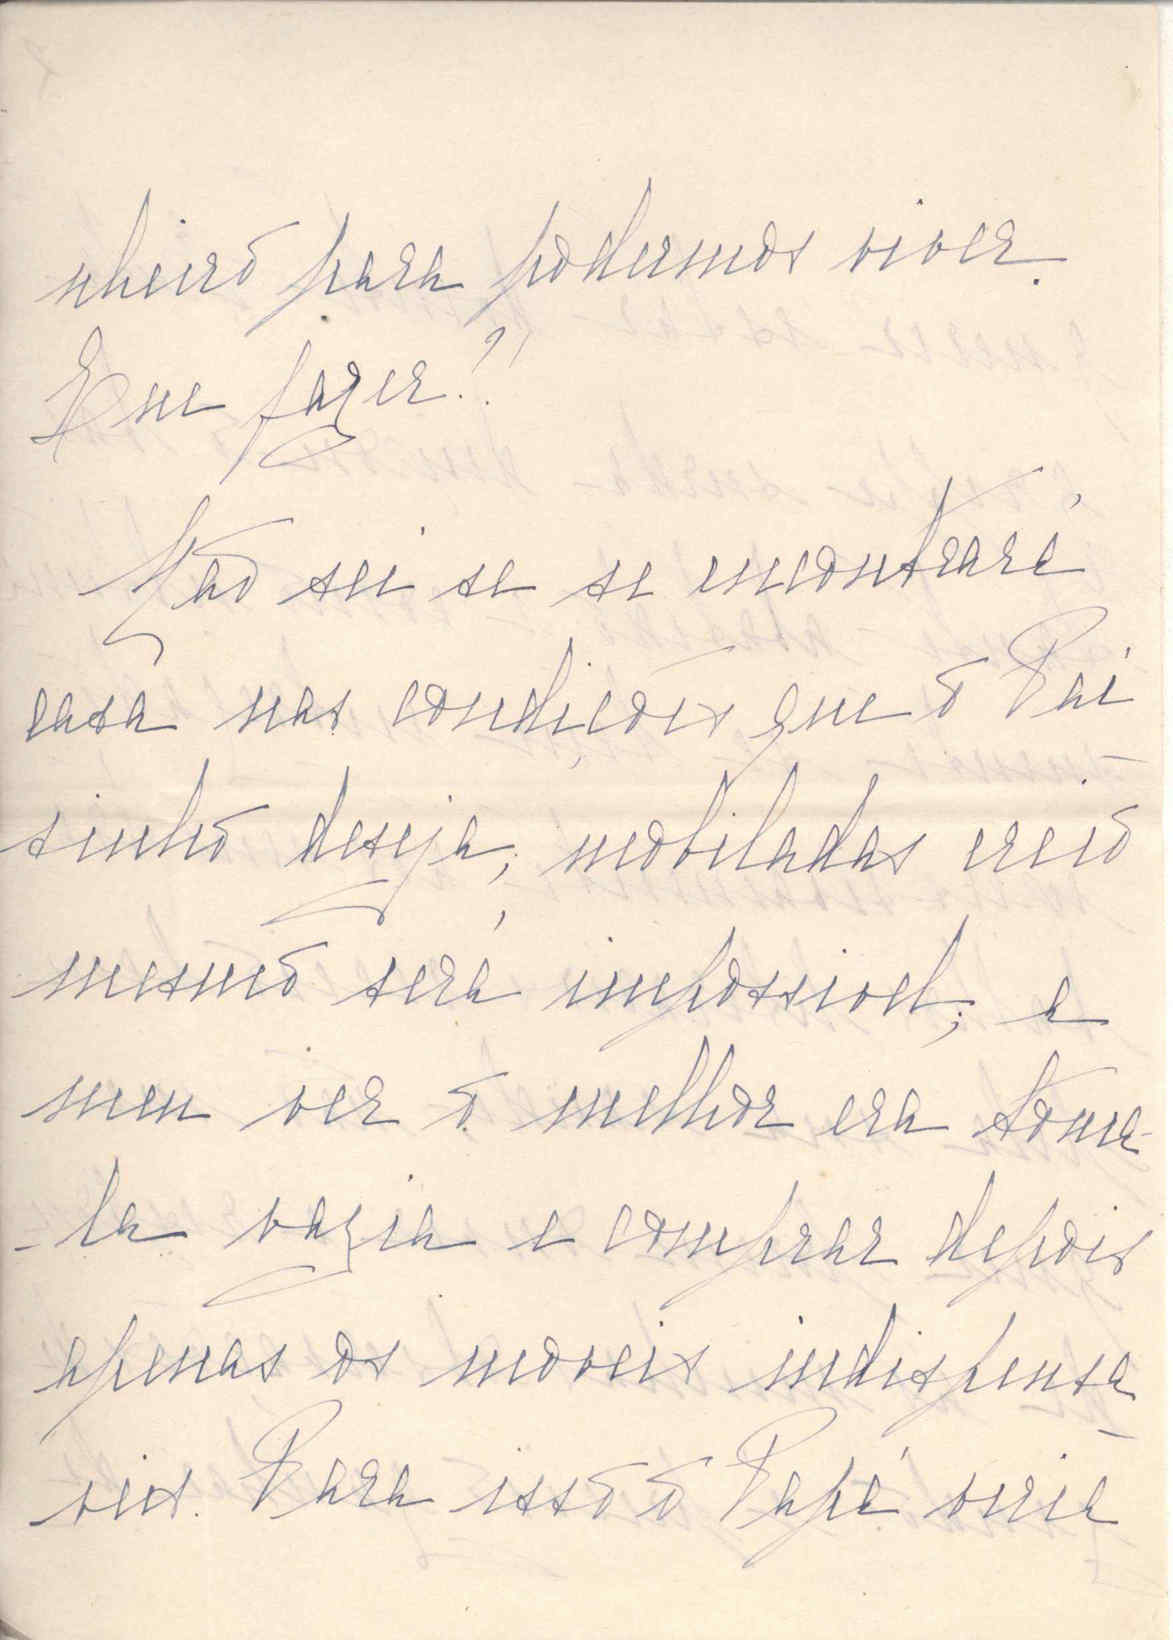 nheiro para podermos viver.
Que fazer?!
Não sei se se encontrará
casa nas condições que o Pai
sinho deseja; mobiladas creio
mesmo será impossivel; a
meu ver o melhor era toma-
-la vazia e comprar depois
apenas os moveis indispensa-
veis. Para isso o Papá viria